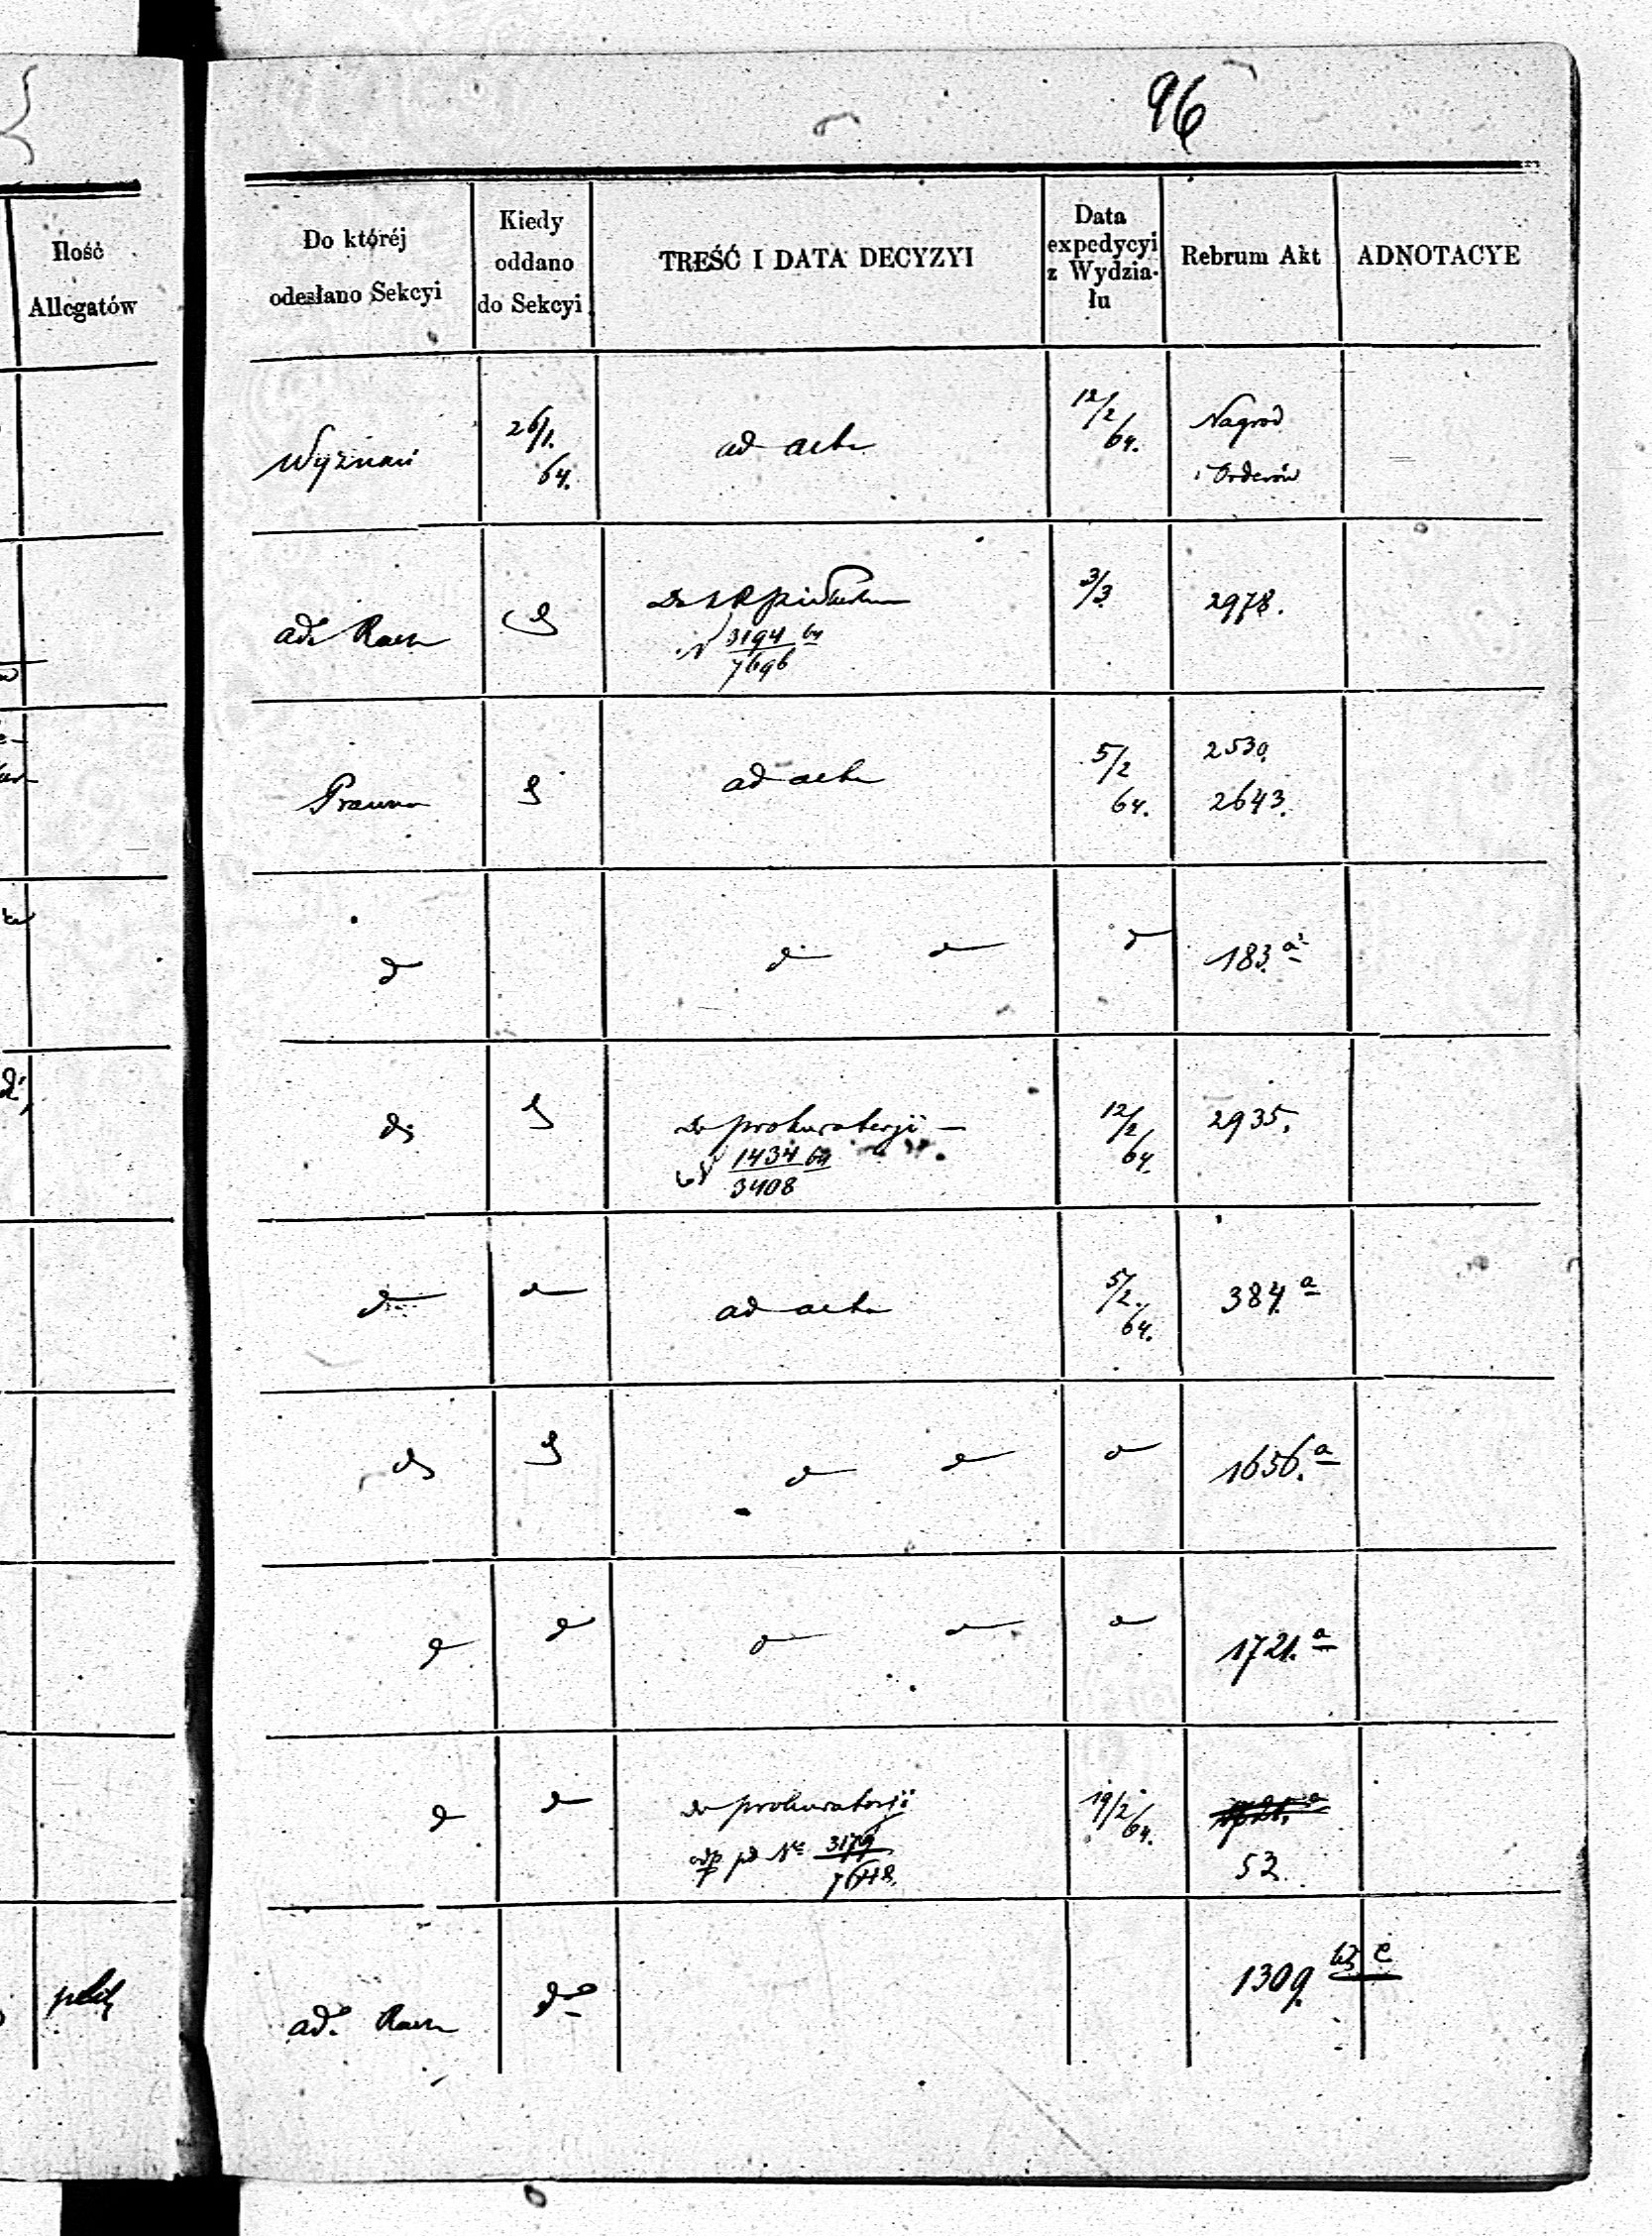 96
Ilość
Allegatów
Do któréj
odesłano Sekcyi
Kiedy
oddano
do Sekcyi
TREŚĆ I DATA DECYZYI
Data
expedycyi
z Wydzia-
łu
Rebrum Akt
ADNOTACYE
Wyznań
26/1.
64.
ad acta
12/2
64.
Nagrod
i Orderów
ad. Rach
Do
N 3194 64
7696
3/3
2978.
Prawna
ad acta
5/2
64.
2530.
2643.
d
d d
d
183. a
d
do prokuratoryi —
N 1434 64
3408
12/2
64.
2935.
d
d
ad acta
5/2.
64.
384. a
d
d d
d
1656. a
d
d
d d
d
1721. a
d
d
do prokuratoryi
odp pod No 3179
7648.
19/2
64.
1721. a
52
ad. Rach
do
1309. e